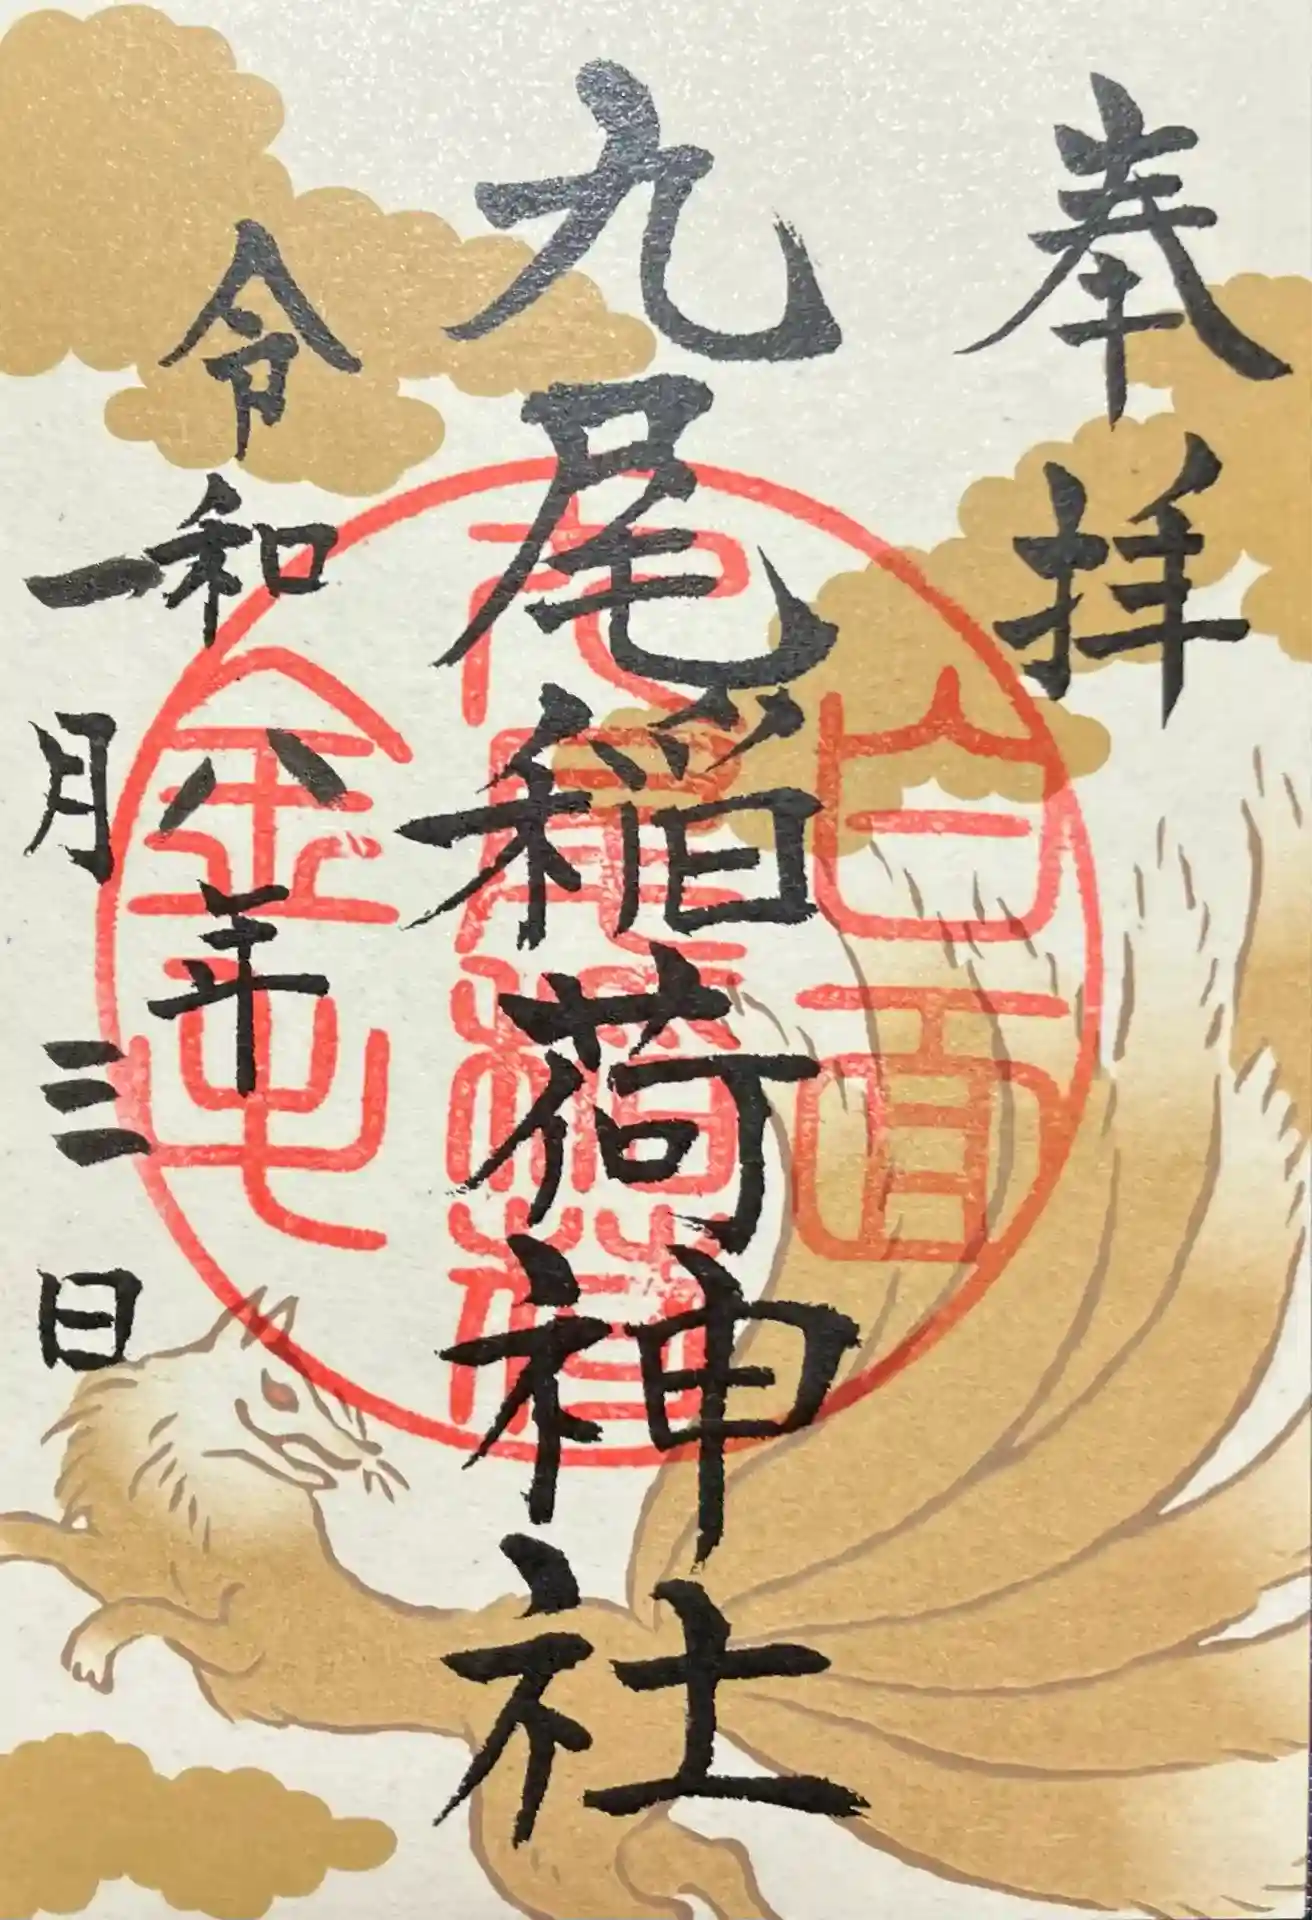 奉拝
九尾稲荷神社
令和八年
一月三日
白面
九尾稲荷
金毛